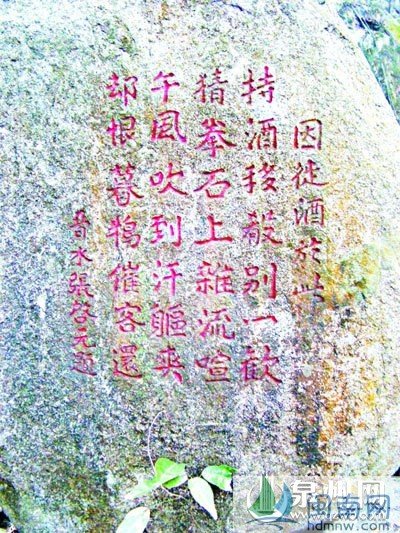 因徙酒於此
持酒移殽别一歡
猜拳石上雜流喧
午風吹到汗軀爽
却恨暮鴉催客還
晉水張啓元題
泉州网
闽南网
hdmnw.com